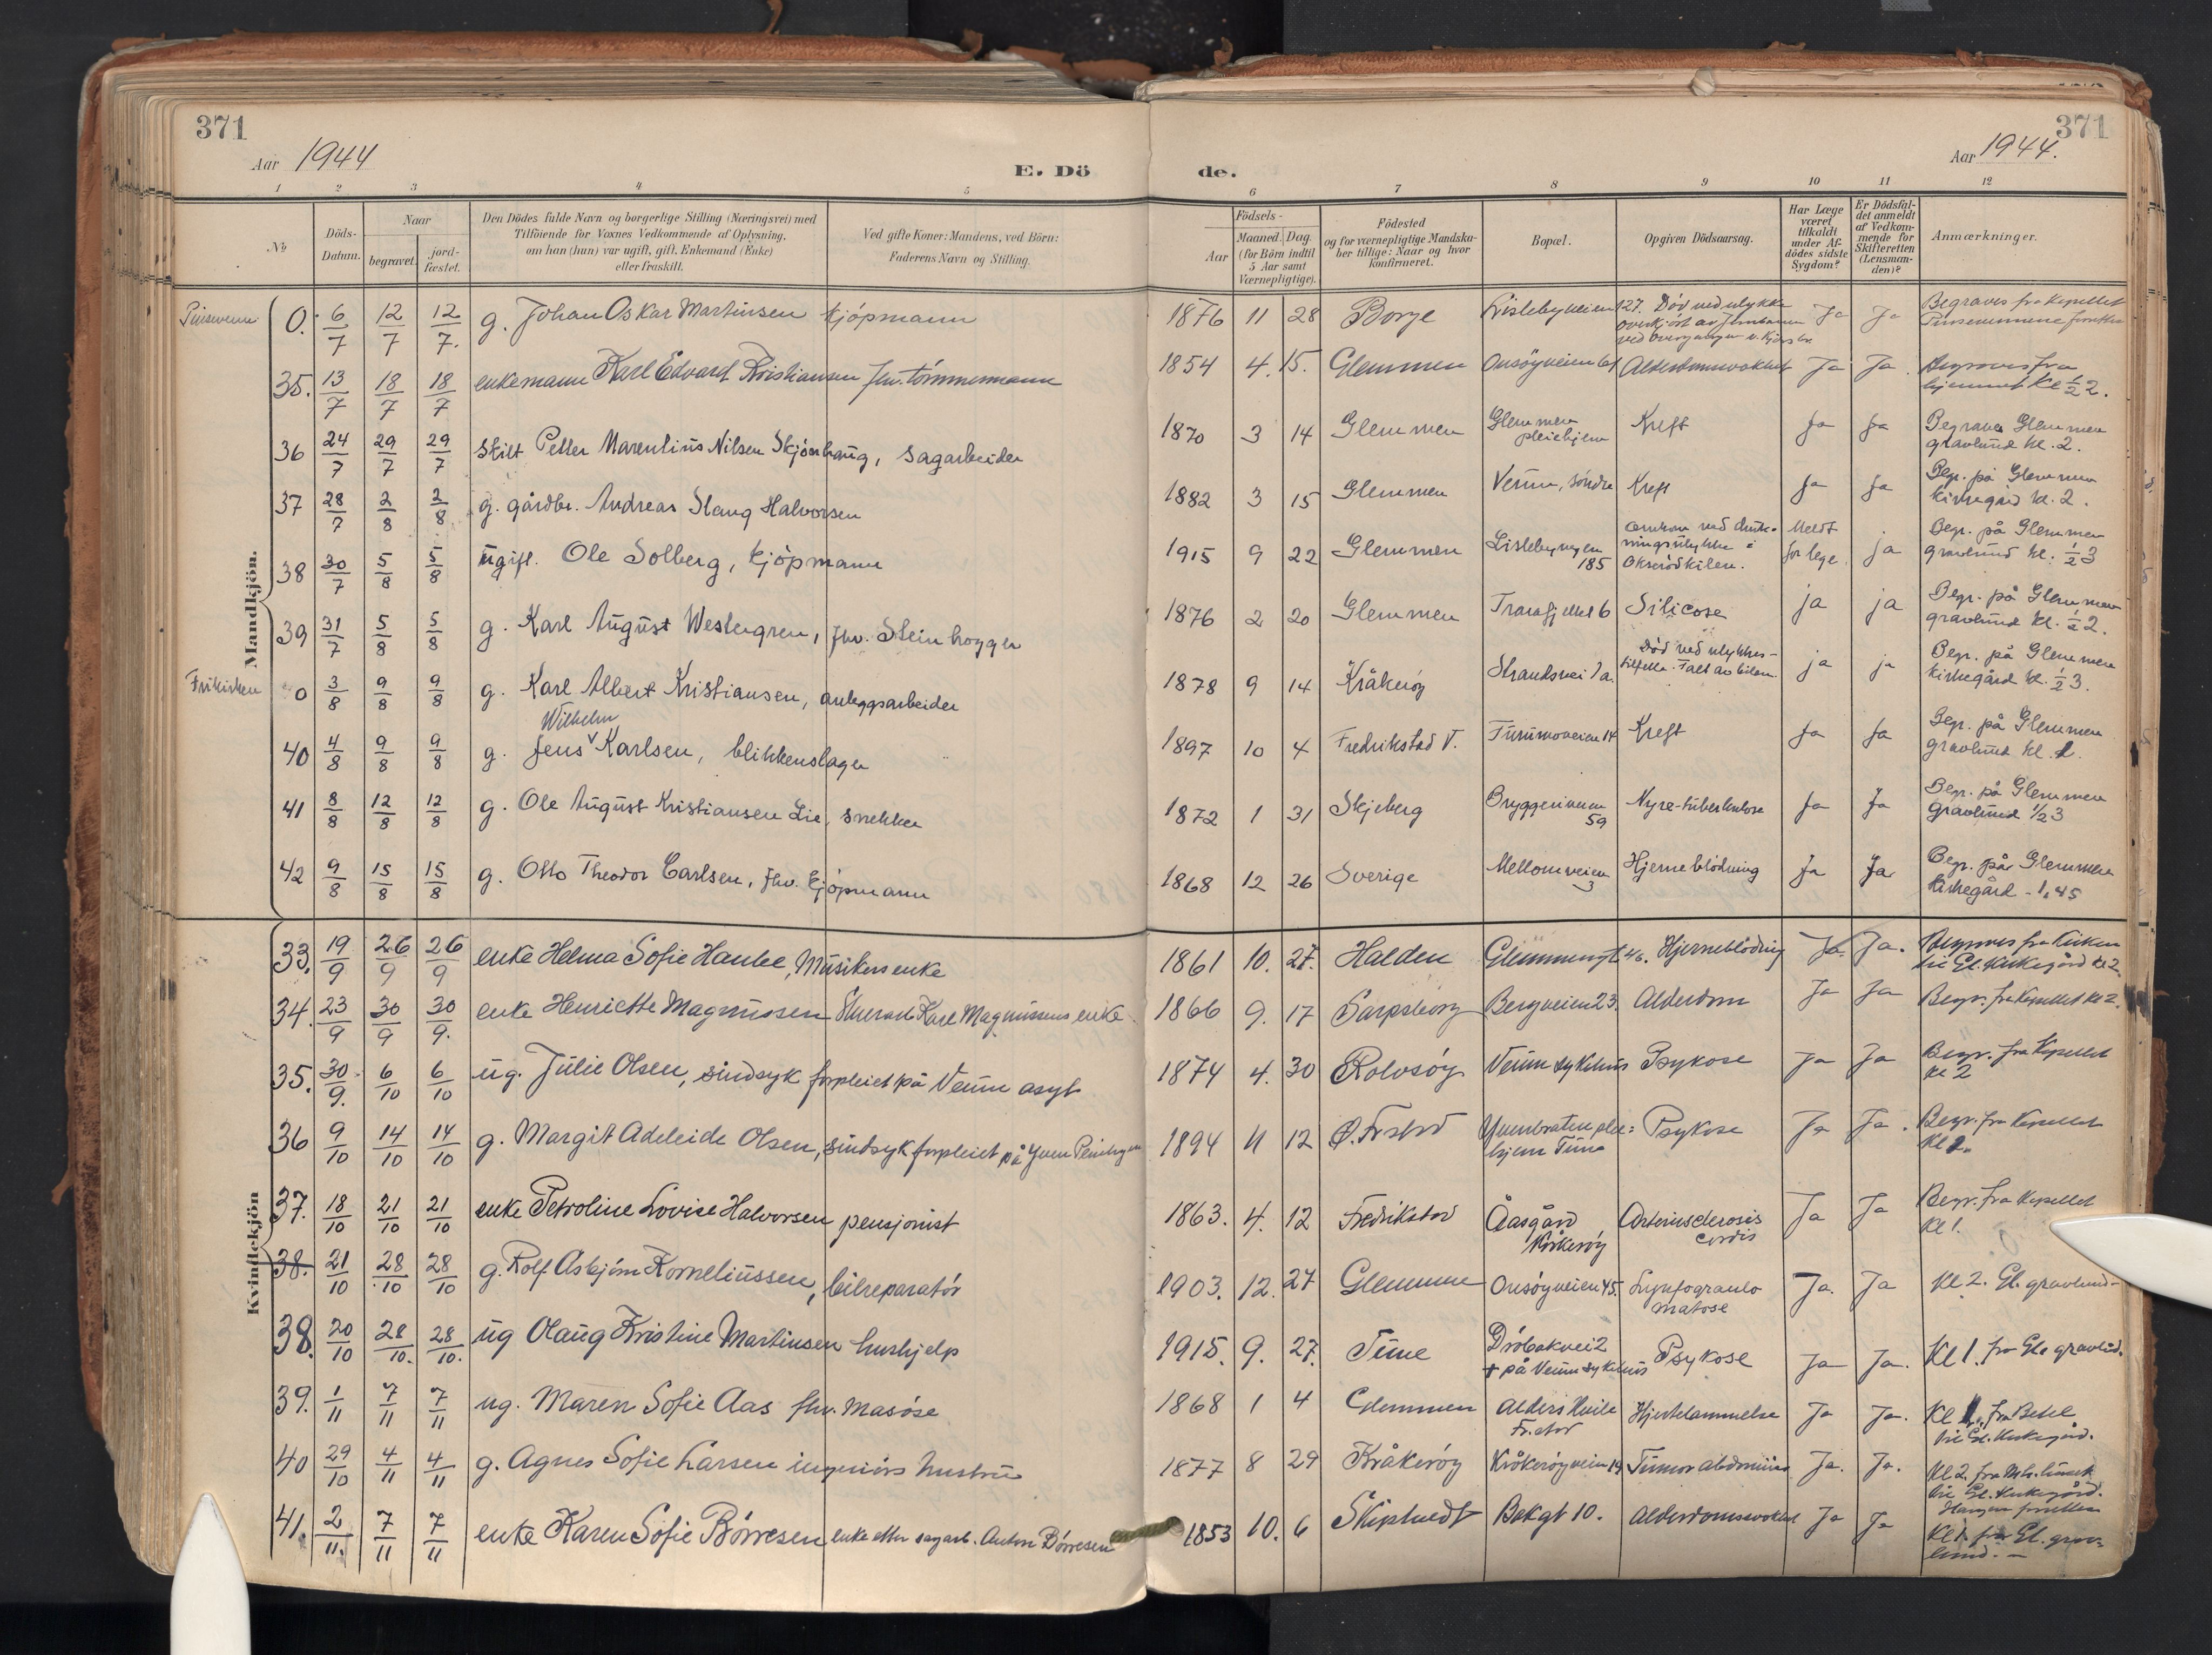 371
Aar 1944
E. Dö
1 2 3 4 5
No
Döds-Datum.
Naar
begravet.
jord-fæstet.
Den Dödes fulde Navn og borgerlige Stilling (Næringsvei) med
Tilföiende for Voxnes Vedkommende af Oplysning,
om han (hun) var ugift, gift, Enkemand (Enke)
eller fraskilt.
Ved gifte Koner: Mandens, ved Börn:
Faderens Navn og Stilling.
Mandkjön.
0. 6/7 12/7 12/7. g. Johan Oskar Martinsen kjöpmann
35. 13/7 18/7 18/7 enkemann Karl Edvard Kristiansen fhv. tömmermann
36 24/7 29/7 29/7 skilt Petter Marentius Nilsen Skjönhaug, sagarbeider
37 28/7 2/8 2/8 g. gårdbr. Andreas Slang Halvorsen
38 30/7 5/8 5/8 ugift. Ole Solberg, kjöpmann
39 31/7 5/8 5/8 g. Karl August Westergren, fhv. Steinhogger
Frikirken 0 3/8 9/8 9/8 g. Karl Albert Kristiansen, anleggsarbeider
Wilhelm
40 4/8 9/8 9/8 g. Jens v Karlsen, blikkenslager
41 8/8 12/8 12/8 g. Ole August Kristiansen Lie, snekker
42 9/8 15/8 15/8 g. Otto Theodor Carlsen, fhv. kjöpmann
Kvindekjön
33. 19/9 26/9 26/9 enke Helma Sofie, Musikers enke
34. 23/9 30/9 30/9. enke Henriette Magnussen Karl Magnussens enke
35. 30/9. 6/10 6/10 ug. Julie Olsen, sindsyk forpleiet på Veum asyl
36 9/10 14/10 14/10 g. Margit Adeleide Olsen, sindsyk forpleiet på
37. 18/10 21/10 21/10 enke Petroline Lovise Halvorsen pensjonist
38. 21/10 28/10 28/10 g. Rolf Asbjörn Korneliussen, bilreparatör
38. 20/10 28/10. 28/10. ug Olaug Kristine Martinsen hushjelp
39. 1/11 7/11 7/11 ug. Maren Sofie Aas fhv. masöse
40 29/10 4/11 4/11 g. Agnes Sofie Larsen ingeniörs hustru
41. 2/11. 7/11 7/11 enke Karen Sofie Börresen enke etter sagarb. Anton Börresen
371
Aar 1944.
de.
6 7 8 9 10 11 12
Födsels-
Aar
Maaned. Dag.
(for Börn indtil
5 Aar samt
Værnepligtige).
Födested
og for værnepligtige Mandska-
ber tillige: Naar og hvor
konfirmeret.
Bopæl.
Opgiven Dödsaarsag.
Har Læge
været
tilkaldt
under Af-
dödes sidste
Sygdom?
Er Dödsfal-
det anmeldt
af Vedkom-
mende for
Skifteretten
(Lensman-
den)?
Anmærkninger.
1876 11 28 Borge Lislebyveien 127. Död ved ulykke Ja Ja Begraves fra kapellet
overkjört av Jernbanen
1854 4. 15. Glemmen Onsöyveien Alderdomssvakhet Ja Ja. Begraves fra
hjemmet kl ½ 2.
1870 3 14 Glemmen Glemmen pleiehjem Kreft Ja Ja Begraves Glemmen
gravlund kl. 2.
1882 3 15 Glemmen Veum, söndre Kreft Ja Ja Begr. på Glemmen
kirkegård kl. 2.
1915 9 22 Glemmen Lislebyveien 185 omkom ved drukningsulykke i Oksrödkilen. Meldt for lege ja Begr. på Glemmen
gravlund kl. ½ 3
1876 2 20 Glemmen Trarafjellet 6 Silicose ja ja Begr. på Glemmen
gravlund kl. ½ 2.
1878 9 14 Kråkeröy Strandvei 7a. Död ved ulykkestilfelle. Falt av bilen ja ja Begr. på Glemmen
kirkegård kl. ½ 3.
1897 10 4 Fredrikstad V. 14 Kreft Ja Ja Begr. på Glemmen
gravlund kl.
1872 1 31 Skjeberg Bryggeriveien 59 Nyre-tuberkulose Ja Ja Begr. på Glemmen
gravlund 1/2 3
1868 12 26 Sverige Mellomveien 3 Hjerneblödning Ja Ja Begr. på Glemmen
kirkegård - 1,45
1861 10. 27. Halden Hjerneblödning Ja. Ja. Begraves fra kirken
til Gl. kirkegård kl 2.
1866 9. 17 Sarpsborg Bergveien 23. Alderdom Ja Ja Begr. fra Kapellet kl 2.
1874 4. 30 Rolvsöy Veum sykehus Psykose Ja Ja Begr. fra Kapellet
kl 2
1894 11 12 Ø. Fr.stad hjem Tune Psykose Ja Ja. Begr. fra Kapellet
kl 2.
1863. 4. 12 Fredrikstad Åasgård Kråkeröy Arteriosclerosis cordis Ja Ja Begr. fra Kapellet
kl 1.
1903. 12. 27 Glemmen Onsöyveien 45. Lymfogranulomatose Ja. Ja Kl 2. Gl. gravlund
1915. 9. 27. Tune Dröbakvei 2 + på Veum sykehus Psykose Ja Ja. Kl 1. fra Gl. gravlund.
1868 1 4 Glemmen Alders Hvile Fr.stad Hjertelammelse Ja Ja. Kl 1. fra Betel
til Gl. kirkegård.
1877 8 29 Kråkeröy Kråkeröyveien 19 Tumor abdominis Ja. Ja. Kl 2. fra
til Gl. kirkegård.
1853 10. 6 Skiptvedt Bakgt 10. Alderdomssvakhet Ja Ja Kl 1. fra Gl. grav-
lund. -